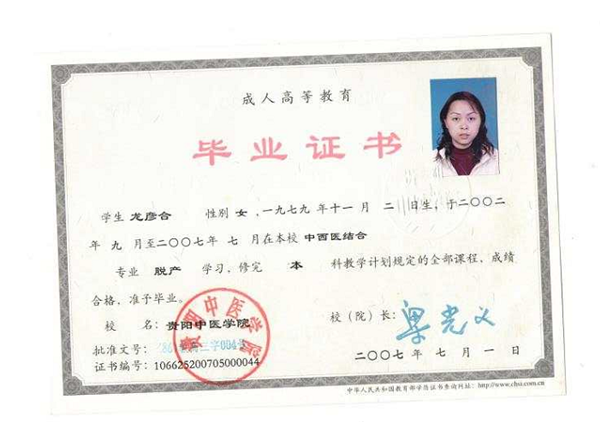 成人高等教育
毕业证书
学生 龙彦合 性别 女 ，一九七九 年 十一 月 二 日生，于二〇〇二
年 九 月至二〇〇七年 七 月在本校 中西医结合
专业 脱产 学习，修完 本 科教学计划规定的全部课程，成绩
合格，准予毕业。
校 名： 贵阳中医学院
校（院）长： 梁光义
批准文号： 三字004号
证书编号： 106625200705000044
贵阳中医学院
二〇〇七年 七 月 一 日
中华人民共和国教育部学历证书查询网址：http://www.chsi.com.cn